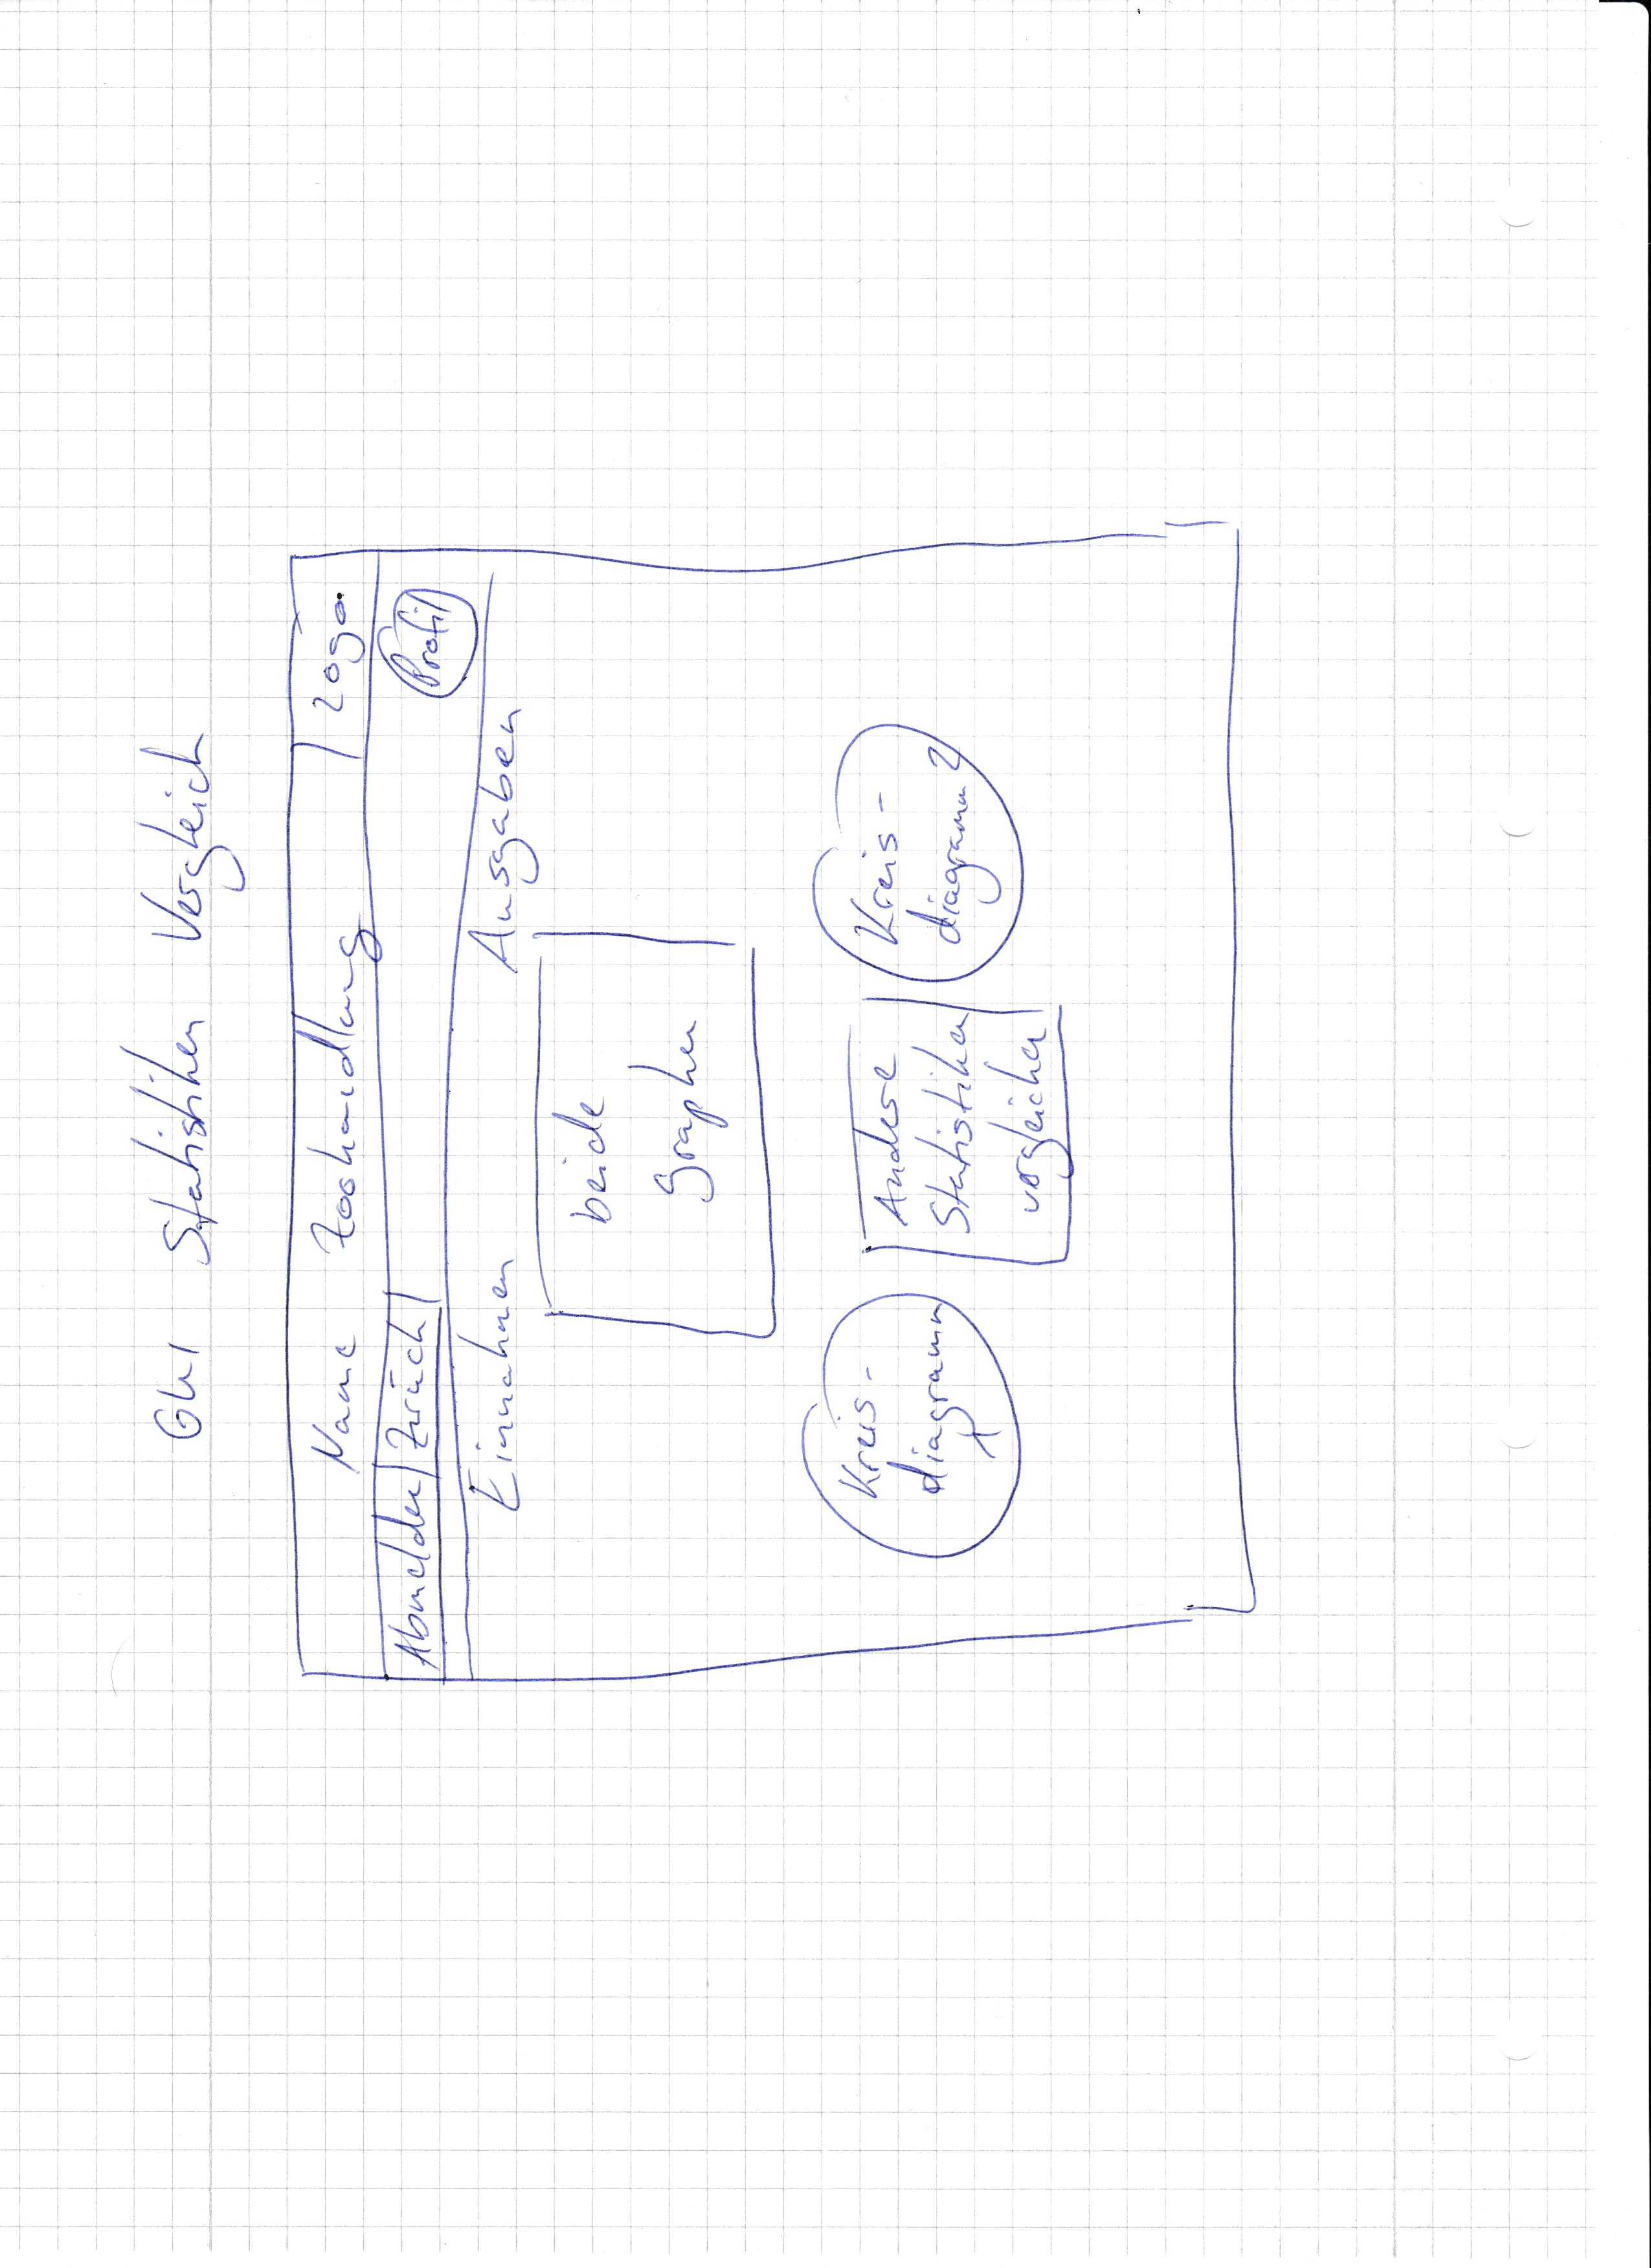 GUI Statistiken Vergleich
Name Zoohandlung Logo
Abmelden Zurück Profil
Einnahmen Ausgaben
beide
Graphen
Kreis-
diagramm
1
Andere
Statistiken
vergleichen
Kreis-
diagramm 2